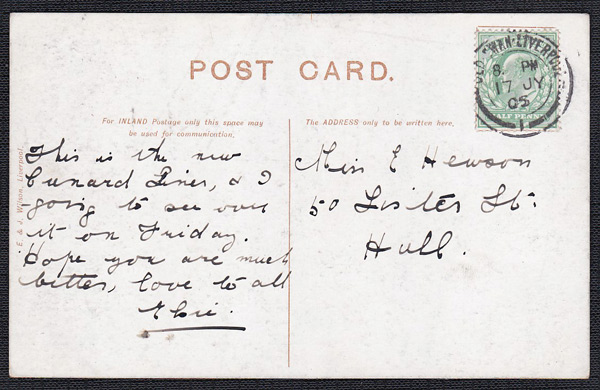 POST CARD.
For INLAND Postage only this space may
be used for communication.
The ADDRESS only to be written here.
This is the new
Cunard Liner, & I
going to see over
it on Friday.
Hope you are much
better, love to all
Elsie.
Miss E Hewson
50 Lister St:
Hull.
E. & J. Wilson, Liverpool.
LIVERPOOL
8 PM
17 JY
05
HALF PENNY